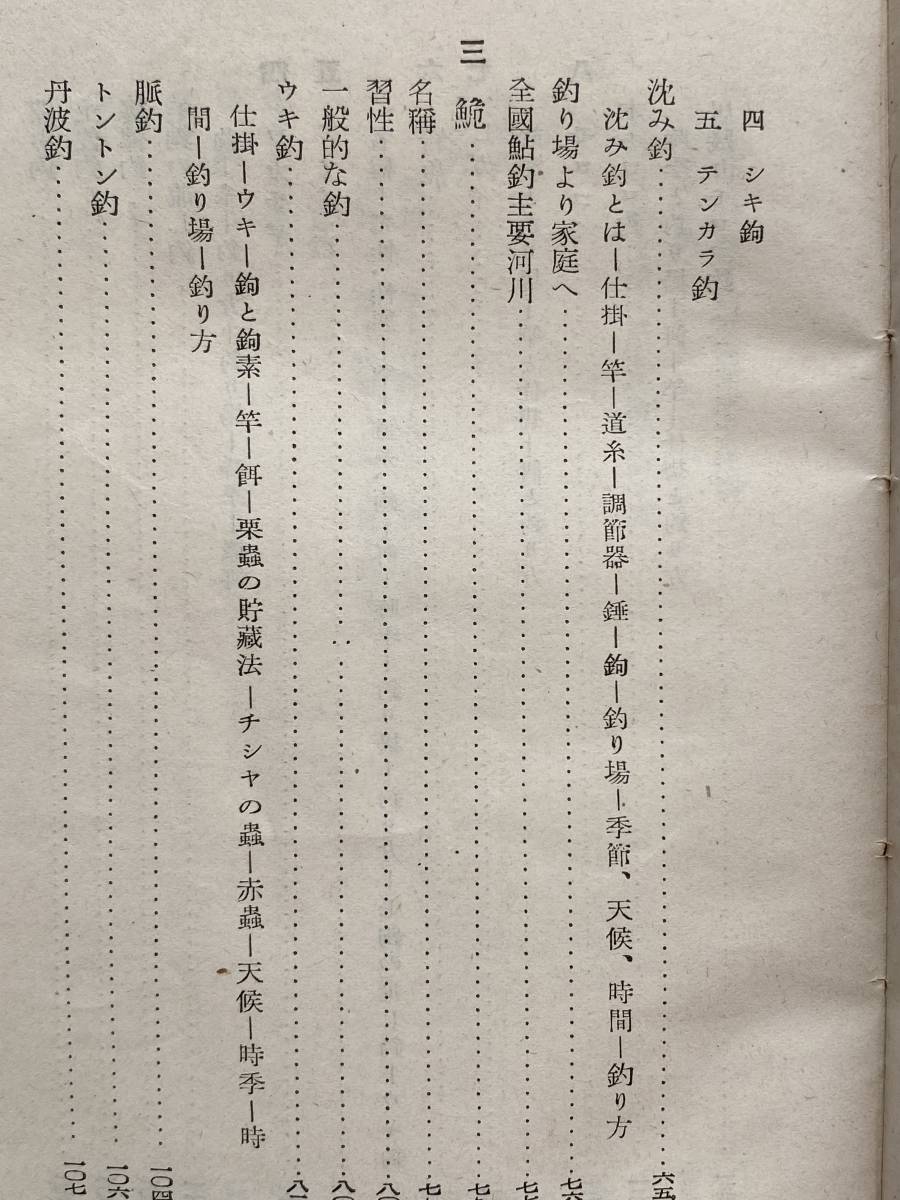 四 シキ鉤
五 テンカラ釣
沈み釣……六五
沈み釣とは―仕掛―竿―道糸―調節器―錘―鉤―釣り場―季節、天候、時間―釣り方
釣り場より家庭へ……七六
全國鮎釣主要河川……七七
三 鮠……七
名稱……七
習性……八〇
一般的な釣……八〇
ウキ釣……八一
仕掛―ウキ―鉤と鉤素―竿―餌―栗蟲の貯藏法―チシヤの蟲―赤蟲―天候―時季―時
間―釣り場―釣り方
脈釣……一〇四
トントン釣……一〇六
丹波釣……一〇七